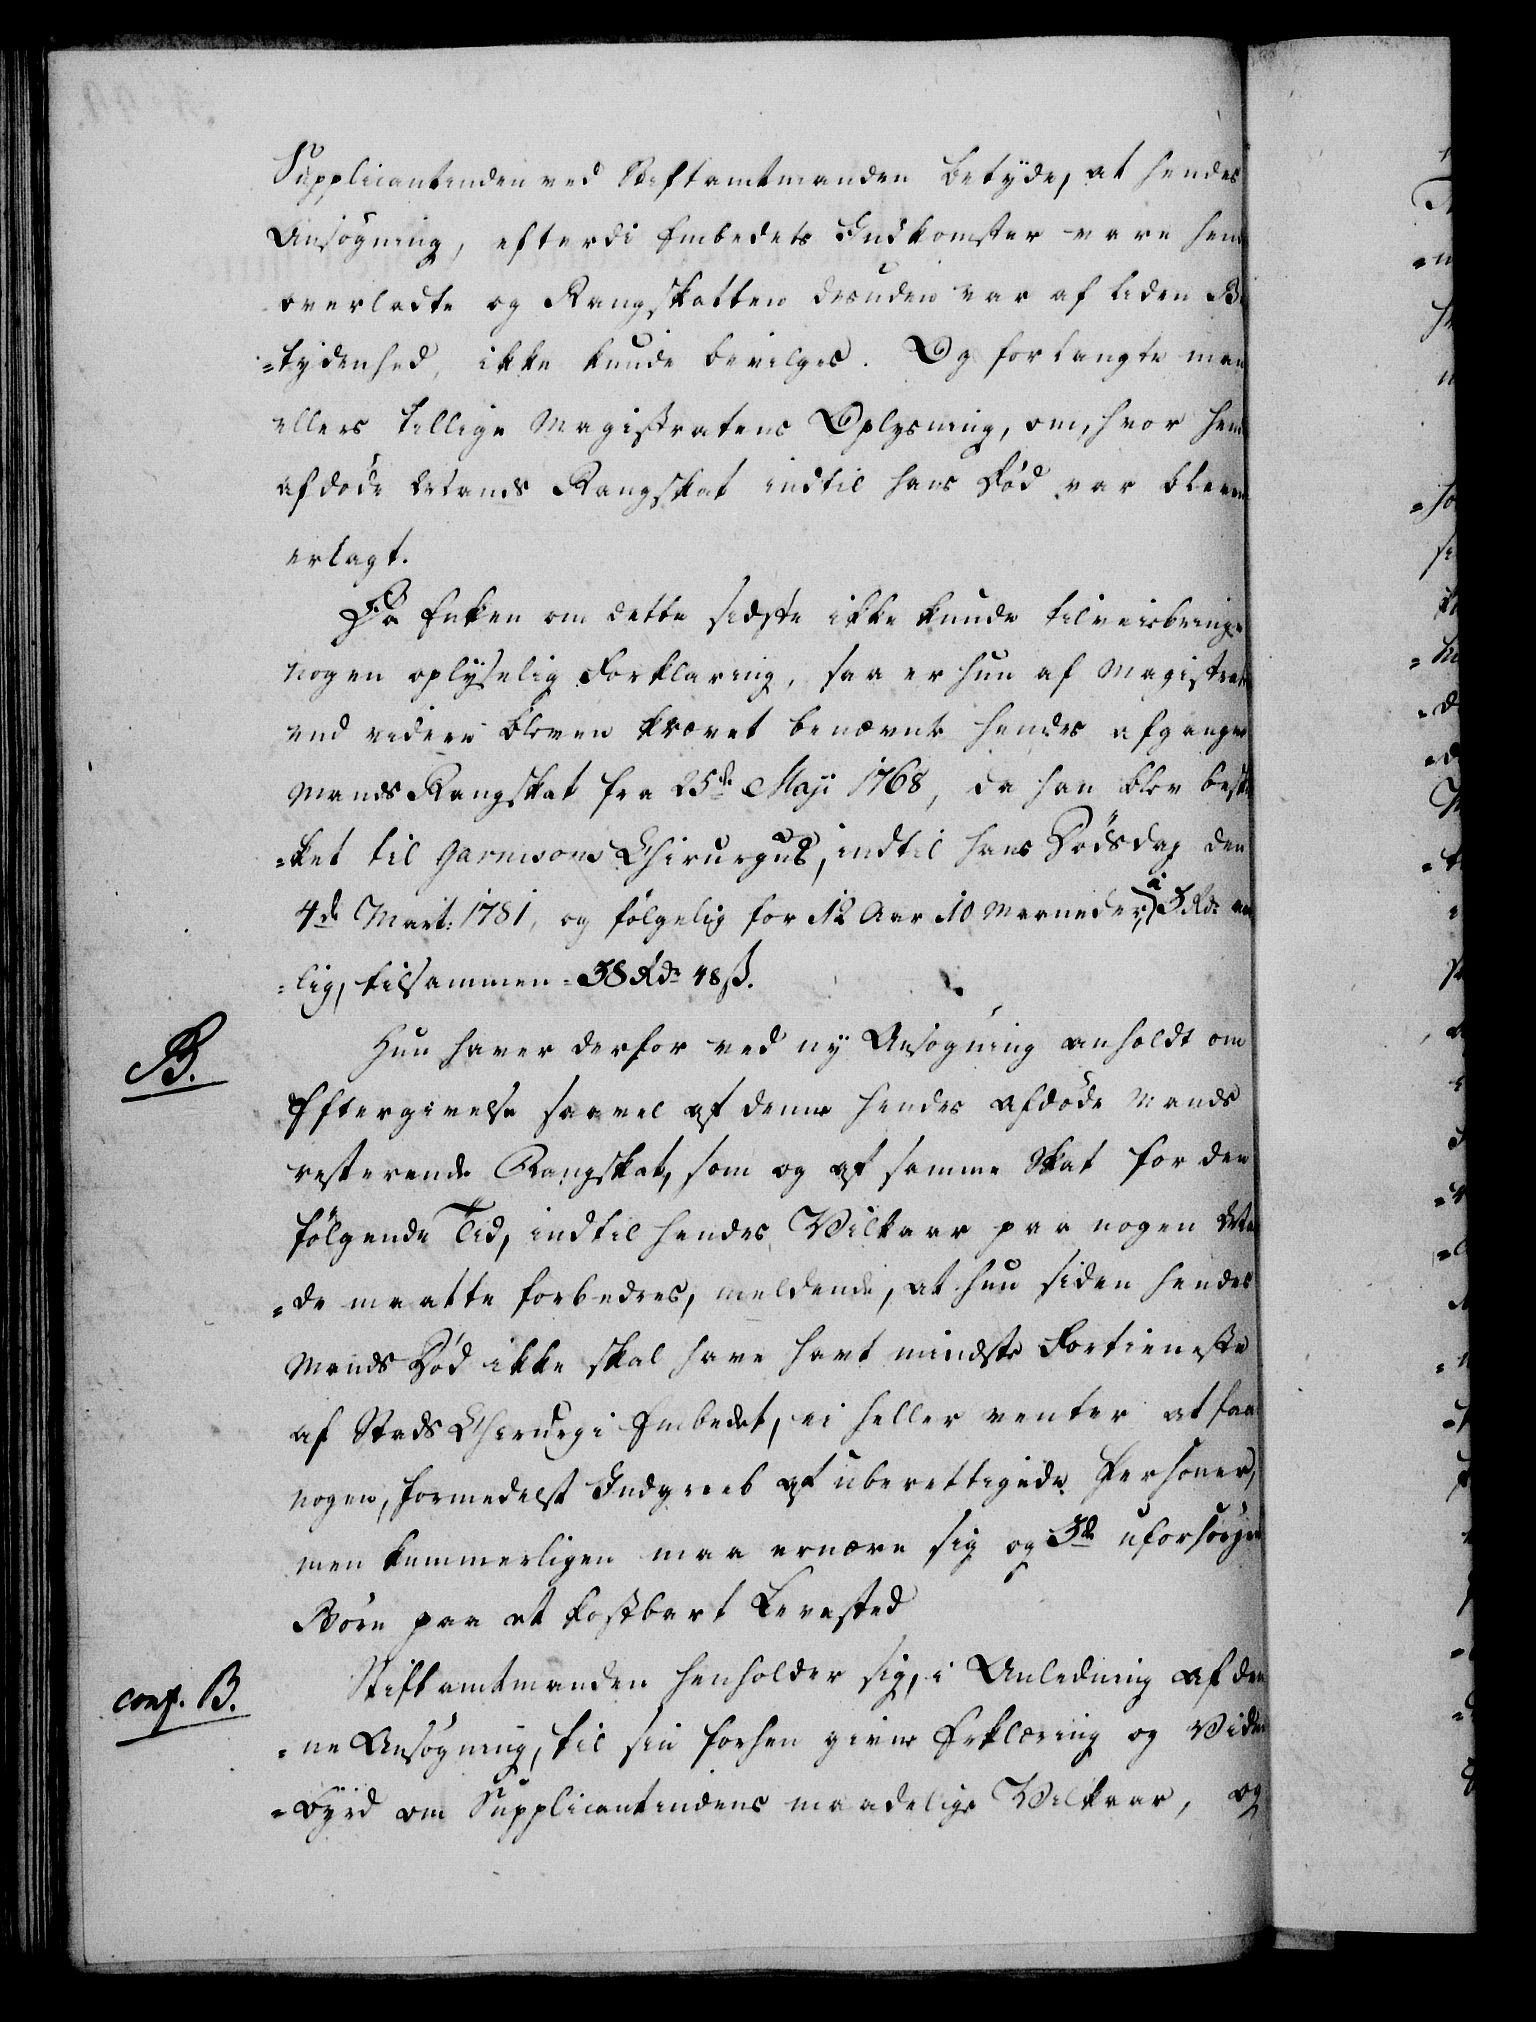 Supplicantinden ved Stiftamtmanden betyde, at hendes
Ansøgning, efterdi Embedets Indkomster vare hen
overladte og Rangskatten desuden var af liden Be
=tydenhed, ikke kunde bevilges. Og forlangte man
ellers tillige Magistratens Oplysning, om, hvor hen
afdøde Mands Rangskat indtil hans Død var bleven
erlagt.
Da Enken om dette sidste ikke kunde tilveiebringe
nogen oplyselig Forklaring, saa er hun af Magistrate
end videre bleven krævet benævnte hendes afgangne
Mands Rangskat fra 25de Maji 1768, da han blev besk
=ket til Garnisons Chirurgus, indtil hans Dødsdag den
4de Mart: 1781, og følgelig for 12 Aar 10 Maaneder, à 3 Rdr aar
=lig, tilsammen = 38 Rdr 48 ß.
B.
Hun haver derfor ved ny Ansøgning anholdt om
Eftergivelse saavel af denne hendes afdøde Mands
resterende Rangskat, som og af samme Skat for den
følgende Tid, indtil hendes Vilkaar paa nogen Maa
=de maatte forbedres, meldende, at hun siden hendes
Mands Død ikke skal have havt mindste Fortieneste
af Stads Chirurgi Embedet, ei heller venter at faae
nogen, formedelst Indgreeb af uberettigede Personer,
men kummerligen maa ernære sig og 3de uforsørgede
Børn paa et kostbart Levested
conf. B.
Stiftamtmanden henholder sig, i Anledning af den
=ne Ansøgning, til sin forhen givne Erklæring og Vidnes
=byrd om Supplicantindens maadelige Vilkaar, og